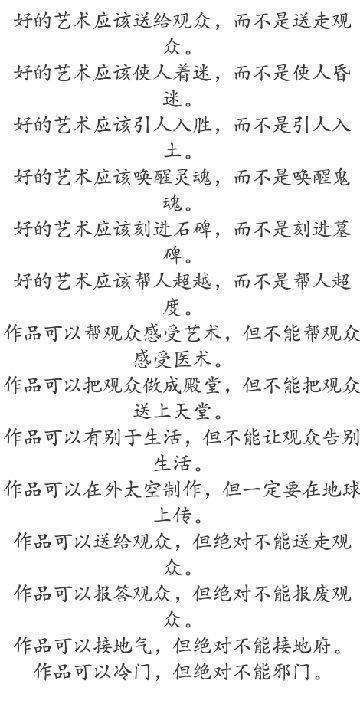 好的艺术应该送给观众，而不是送走观
众。
好的艺术应该使人着迷，而不是使人昏
迷。
好的艺术应该引人入胜，而不是引人入
土。
好的艺术应该唤醒灵魂，而不是唤醒鬼
魂。
好的艺术应该刻进石碑，而不是刻进墓
碑。
好的艺术应该帮人超越，而不是帮人超
度。
作品可以帮观众感受艺术，但不能帮观众
感受医术。
作品可以把观众做成殿堂，但不能把观众
送上天堂。
作品可以有别于生活，但不能让观众告别
生活。
作品可以在外太空制作，但一定要在地球
上传。
作品可以送给观众，但绝对不能送走观
众。
作品可以报答观众，但绝对不能报废观
众。
作品可以接地气，但绝对不能接地府。
作品可以冷门，但绝对不能邪门。